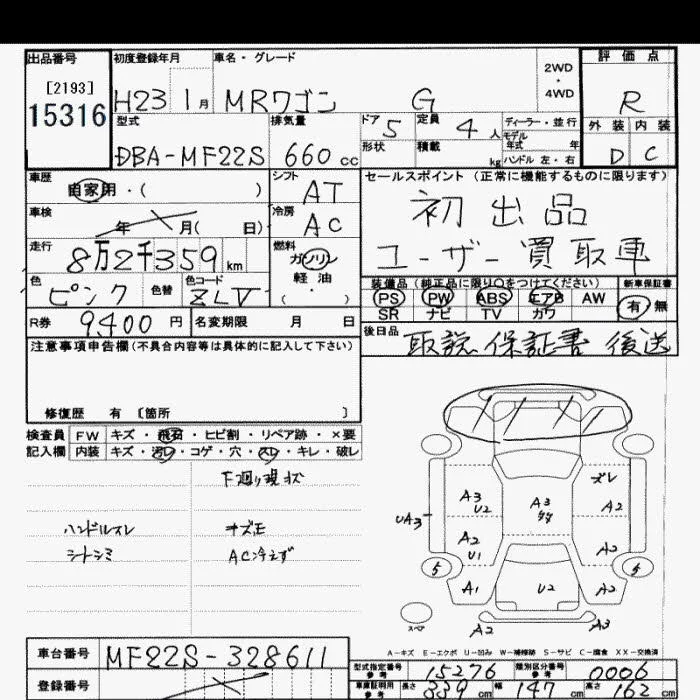 出品番号 初度登録年月 車名・グレード 2WD・4WD 評価点
[2193]
15316 H23 1月 MRワゴン G R
型式 排気量 ドア 5 定員 4人 ディーラー・並行 外装 内装
モデル年式 年
形状 積載 kg ハンドル 左・右
DBA-MF22S 660cc D C
車歴 自家用・( ) シフト AT セールスポイント(正常に機能するものに限ります)
車検 年 月( 日) 冷房 AC 初出品
走行 8万2千359km 燃料 ガソリン ユーザー買取車
軽油
( )
色 ピンク 色替 色コード ZLV 装備品(純正品に限り○をつけてください) 新車保証書
PS PW ABS エアB AW 有・無
SR ナビ TV カワ
R券 9,400円 名変期限 月 日 後日品 取説 保証書 後送
注意事項申告欄(不具合内容等は具体的に記入して下さい)
修復歴 有 〔箇所 〕
検査員 FW キズ・飛石・ヒビ割・リペア跡・×要
記入欄 内装 キズ・汚レ・コゲ・穴・スレ・キレ・破レ
下廻り現状
ハンドルスレ キズ正
シートシミ AC冷えず
ズレ
A3 U2 A3 A2
UA3
A2 U1 A2
5 5
A1 U2 A2
スペア A2 A3
A-キズ E-エクボ U-凹み W-補修跡 S-サビ C-腐食 XX-交換済
車台番号 MF22S-328611
型式指定番号 参考 15276 類別区分番号 参考 0006
登録番号 車庫証明用 参考 長さ 339cm 幅 147cm 高さ 162cm